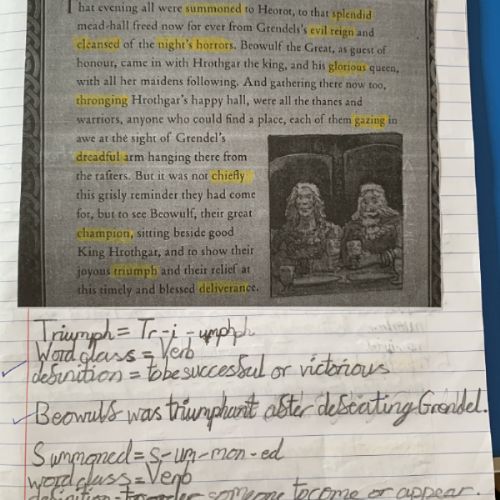 That evening all were summoned to Heorot, to that splendid
mead-hall freed now for ever from Grendel's evil reign and
cleansed of the night's horrors. Beowulf the Great, as guest of
honour, came in with Hrothgar the king, and his glorious queen,
with all her maidens following. And gathering there now too,
thronging Hrothgar's happy hall, were all the thanes and
warriors, anyone who could find a place, each of them gazing in
awe at the sight of Grendel's
dreadful arm hanging there from
the rafters. But it was not chiefly
this grisly reminder they had come
for, but to see Beowulf, their great
champion, sitting beside good
King Hrothgar, and to show their
joyous triumph and their relief at
this timely and blessed deliverance.
Triumph = Tr-i-umphph
Word glass = Verb
definition = to be successful or victorious
Beowulf was triumphant after defeating Grendel.
Summoned = s-um-mon-ed
word glass = Verb
definition = to order someone to come or appear.